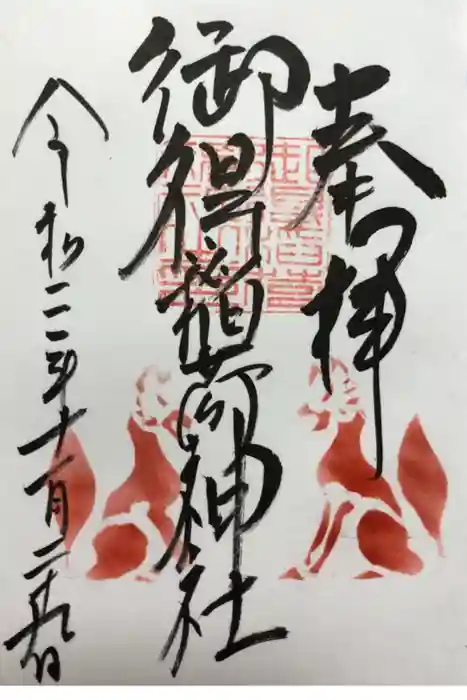 奉拝
御得稲荷神社
令和二年十一月二十九日